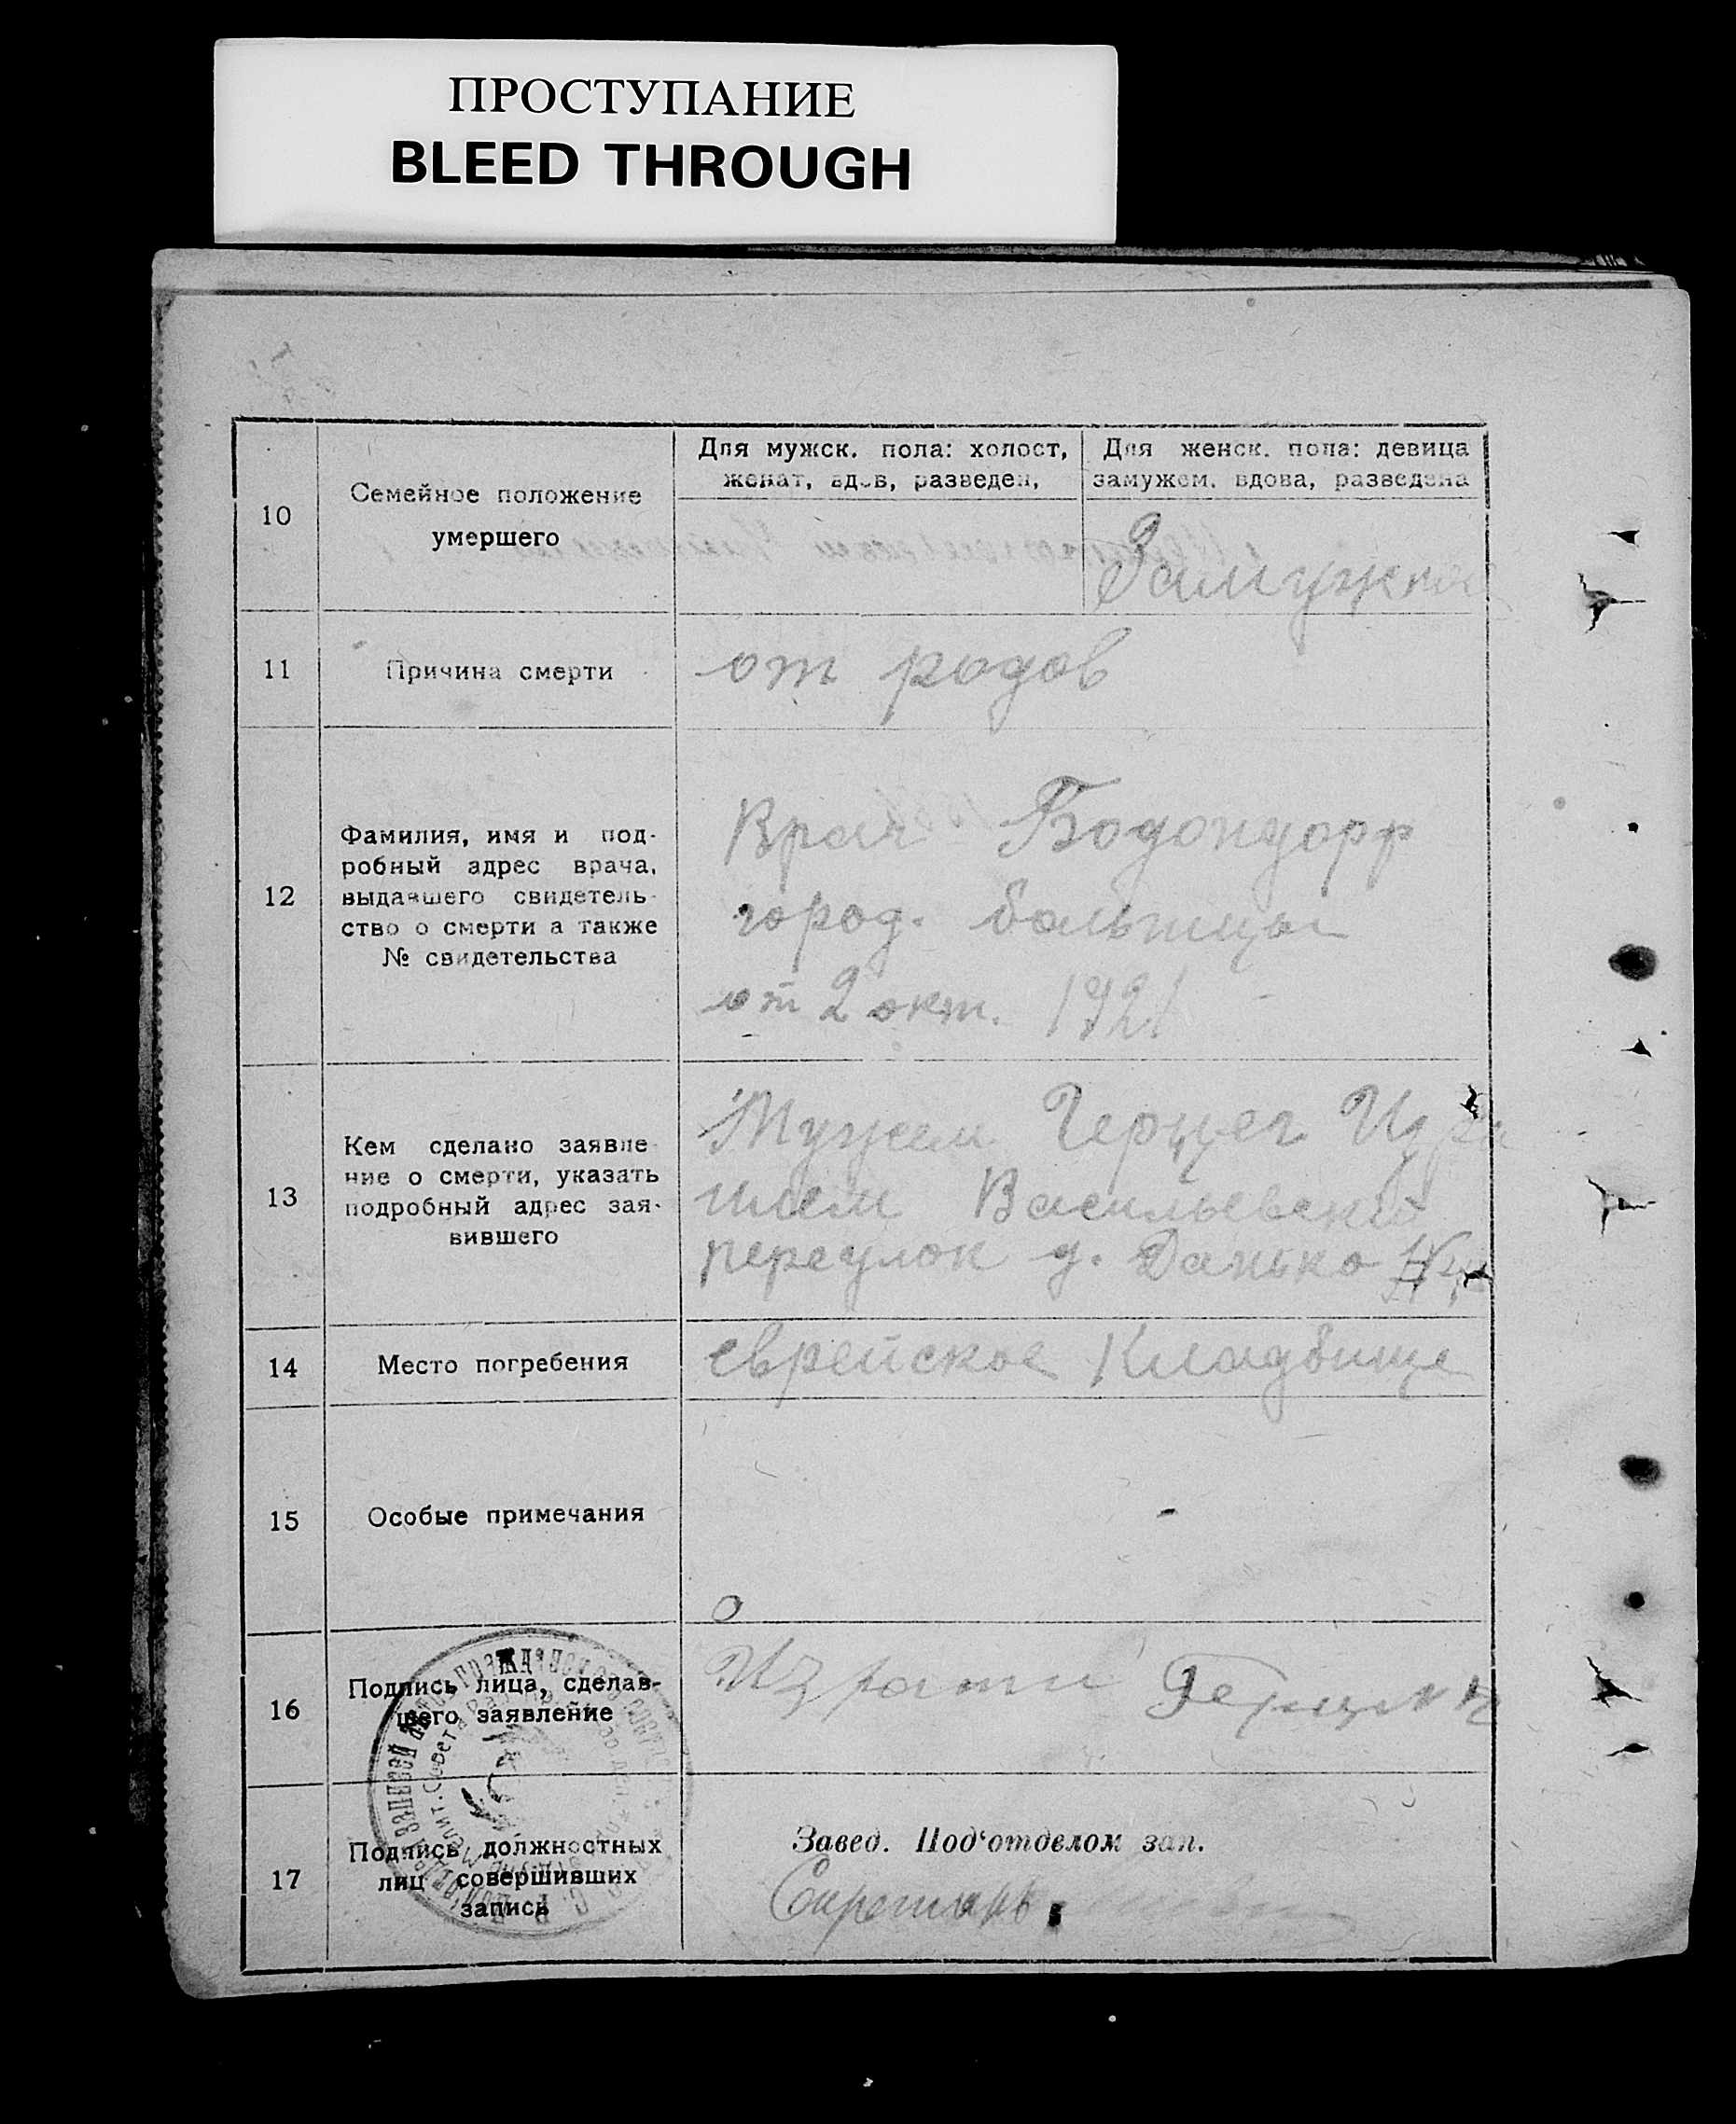 ПРОСТУПАНИЕ
BLEED THROUGH
10
Семейное положение
умершего
Для мужск. пола: холост,
женат, вдов, разведен,
Для женск. пола: девица
замужем, вдова, разведена
Замужняя
11
Причина смерти
от родов
12
Фамилия, имя и под-
робный адрес врача,
выдавшего свидетель-
ство о смерти а также
№ свидетельства
Врач
город. больницы
от 2 окт. 1921
13
Кем сделано заявле-
ние о смерти, указать
подробный адрес зая-
вившего
Мужем Герцег
Васильевский
переулок д. Данько
14
Место погребения
еврейское Кладбище
15
Особые примечания
-
16
Подпись лица, сделав-
шего заявление
17
Подпись должностных
лиц совершивших
запись
Завед. Под'отделом зап.
Секретарь